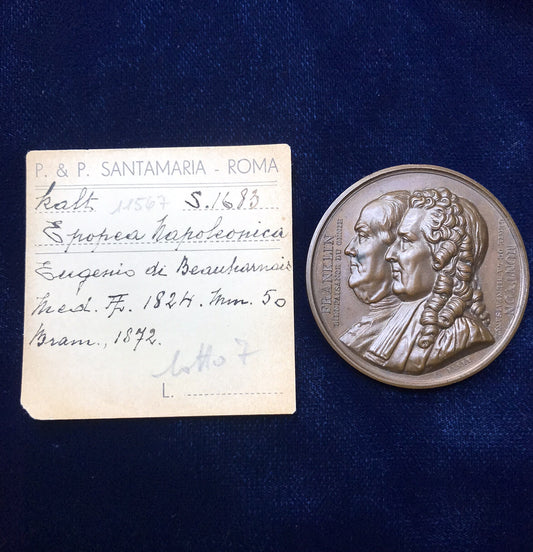 P. & P. SANTAMARIA - ROMA
kalt 11567 S. 1683
Epopea Napoleonica
Eugenio di Beauharnais
Med. Æ. 1824. Mm. 50
Bram., 1872.
lotto 7
L.
FRANKLIN
MONTYON